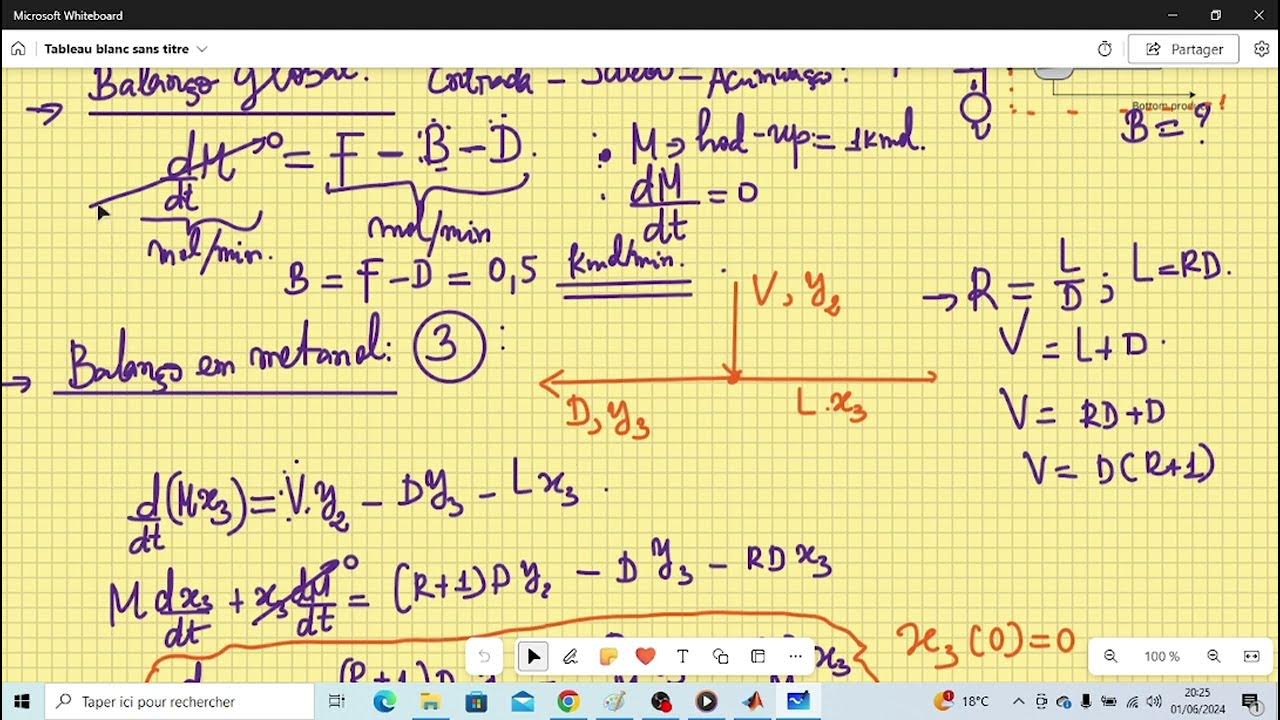 Microsoft Whiteboard
Tableau blanc sans titre
Partager
→ Balanço Global: Entrada - Saída - Acumulação:
Bottom product
B = ?
dM/dt →0 = F - Ḃ - Ḋ.
mol/min.
mol/min
• M → hod-up = 1kmol.
dM/dt = 0
B = F - D = 0,5 kmol/min.
V, y₂
→ R = L/D ; L = RD.
V = L + D.
→ Balanço em metanol: 3 :
D, y₃
L.x₃
V = RD + D
V = D(R+1)
d/dt (Mx₃) = V. y₂ - Dy₃ - Lx₃.
M dx₃/dt + x₃ dM/dt →0 = (R+1)D y₂ - D y₃ - RD x₃
x₃(0) = 0
(R+1)D
x₃
100 %
Taper ici pour rechercher
1
18°C
20:25
01/06/2024
1